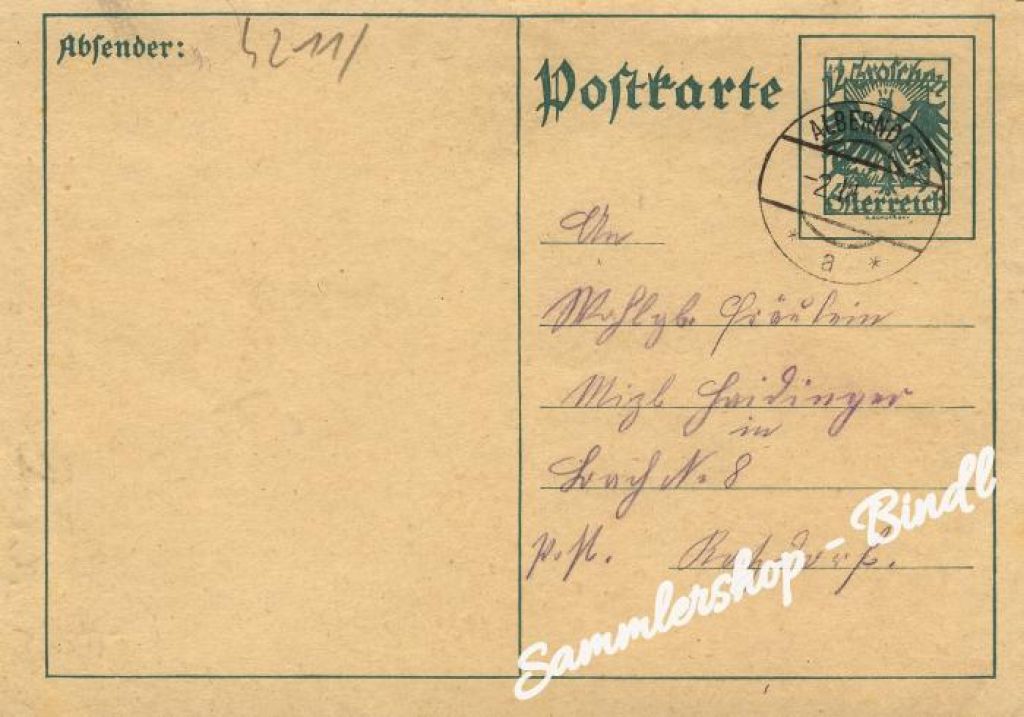 Absender:
4211/
Postkarte
12 Groschen
Österreich
ALBERNDORF
* a *
An
Wohlgb. Fräulein
Mizl Haidinger
in
No 8
Post.
Sammlershop - Bindl